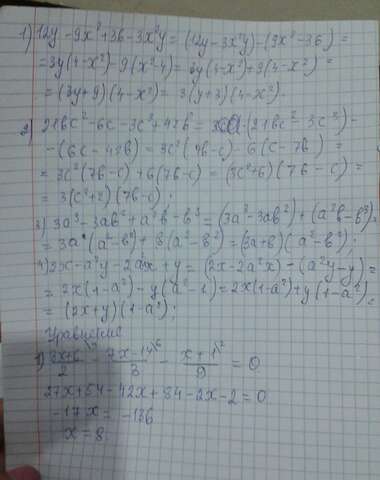 1) 12y - 9x² + 36 - 3x²y = (12y - 3x²y) - (9x² - 36) =
= 3y(4-x²) - 9(x²-4) = 3y(4-x²) + 9(4-x²) =
= (3y+9)(4-x²) = 3(y+3)(4-x²).
2) 21bc² - 6c - 3c³ + 42b = (21bc² - 3c³) -
- (6c - 42b) = 3c²(7b-c) - 6(c-7b) =
= 3c²(7b-c) + 6(7b-c) = (3c²+6)(7b-c) =
= 3(c²+2)(7b-c);
3) 3a³ - 3ab² + a²b - b³ = (3a³ - 3ab²) + (a²b - b³) =
= 3a(a²-b²) + b(a²-b²) = (3a+b)(a²-b²);
4) 2x - a²y - 2a²x + y = (2x - 2a²x) - (a²y - y) =
= 2x(1-a²) - y(a²-1) = 2x(1-a²) + y(1-a²) =
= (2x+y)(1-a²);
Уравнение
1) 3x+6\⁹/2 - 7x-14\⁶/3 - x+1\²/9 = 0
27x + 54 - 42x + 84 - 2x - 2 = 0
-17x = -136
x = 8